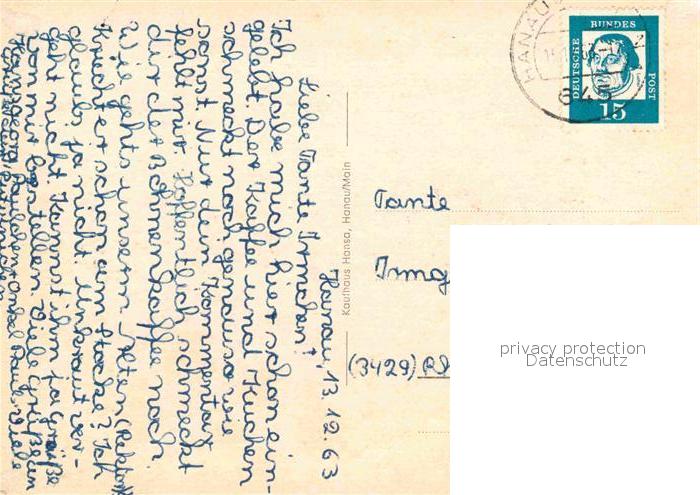 Hanau, 13.12.63
Liebe Tante Irmchen!
Ich habe mich hier schon ein-
gelebt. Der Kaffee und Kuchen
schmeckt noch genauso wie
sonst. Nur dein Kommentar
fehlt mir. Hoffentlich schmeckt
dir der Bohnenkaffee noch.
Wie gehts unserm „Alten“ (Rektor)?
Kriecht er schon am Stocke? Ich
glaub, ja nicht. Unkraut ver-
geht nicht. Kannst ihm ja Grüße
von mir bestellen. Viele Grüße an
Onkel Paul. Viele
Kaufhaus Hansa, Hanau/Main
Tante
Irmg
(3429)
HANAU
645
DEUTSCHE
BUNDES
POST
15
privacy protection
Datenschutz